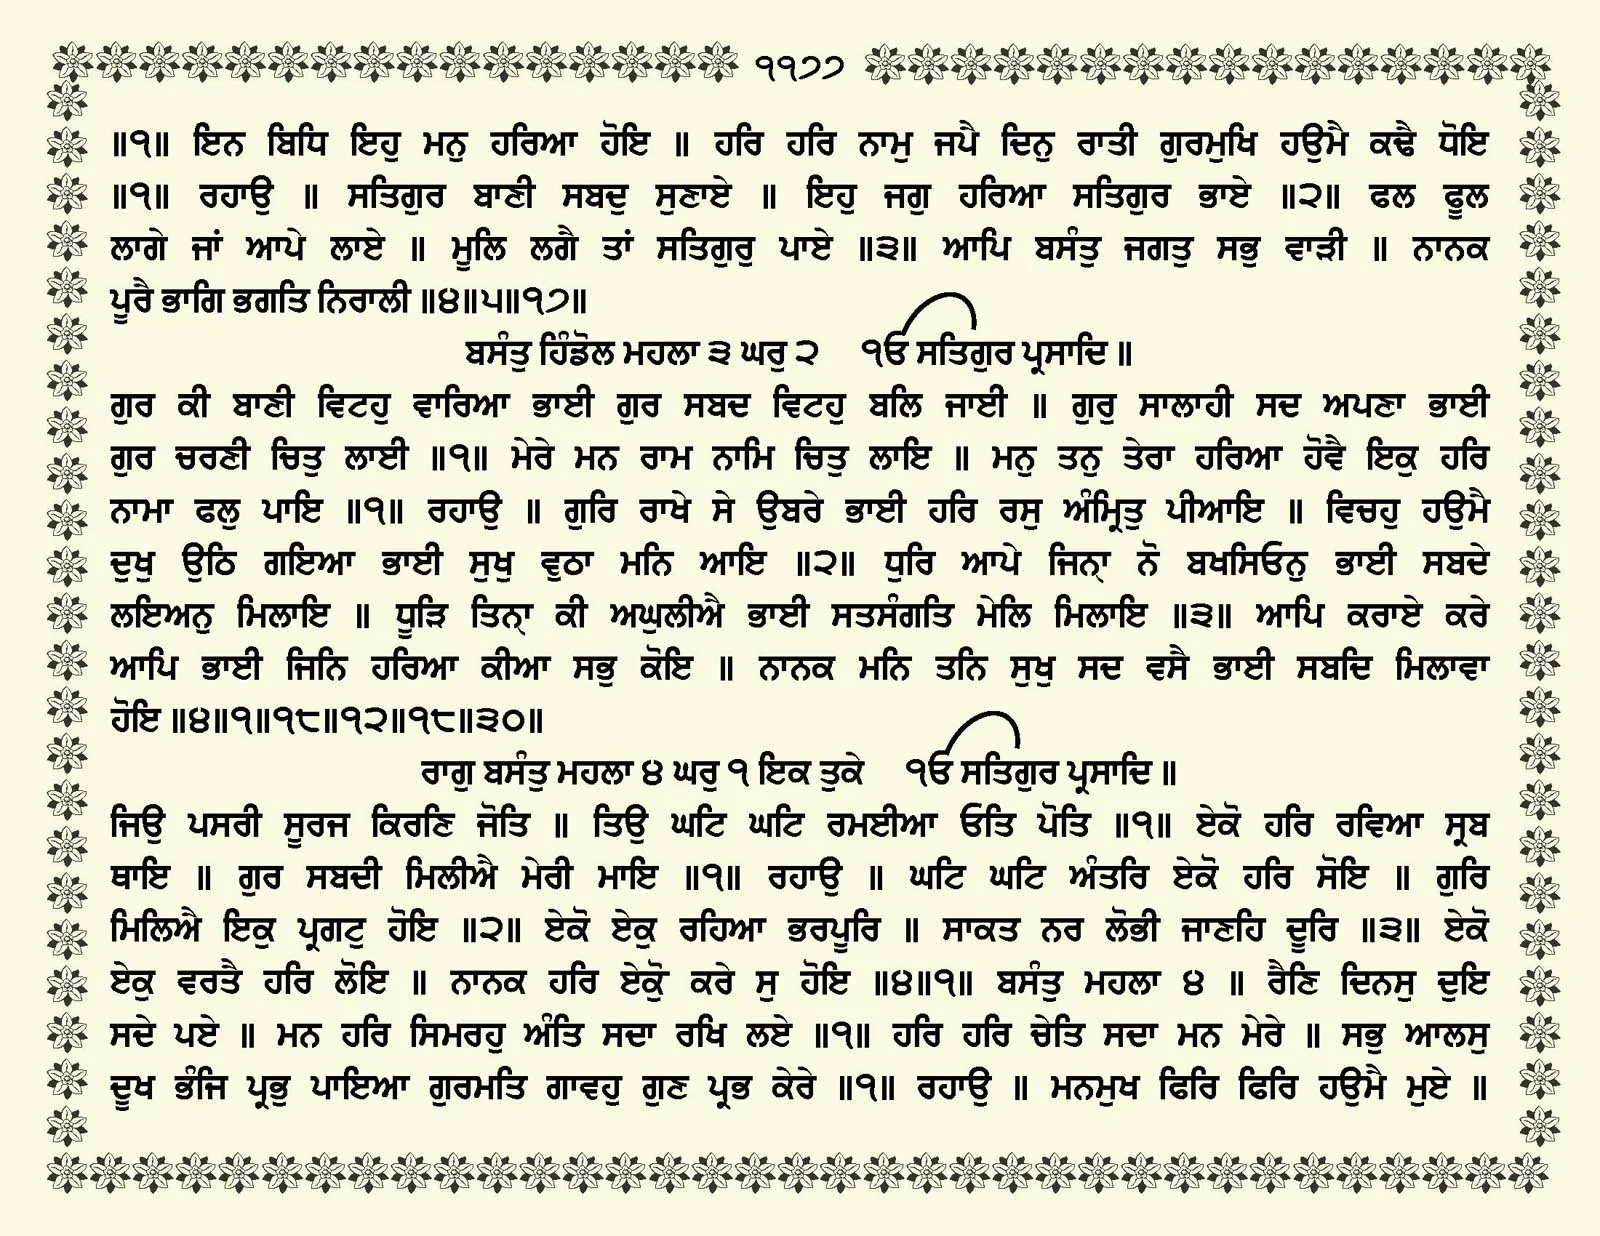 ੧੧੭੭
॥੧॥ ਇਨ ਬਿਧਿ ਇਹੁ ਮਨੁ ਹਰਿਆ ਹੋਇ ॥ ਹਰਿ ਹਰਿ ਨਾਮੁ ਜਪੈ ਦਿਨੁ ਰਾਤੀ ਗੁਰਮੁਖਿ ਹਉਮੈ ਕਢੈ ਧੋਇ
॥੧॥ ਰਹਾਉ ॥ ਸਤਿਗੁਰ ਬਾਣੀ ਸਬਦੁ ਸੁਣਾਏ ॥ ਇਹੁ ਜਗੁ ਹਰਿਆ ਸਤਿਗੁਰ ਭਾਏ ॥੨॥ ਫਲ ਫੂਲ
ਲਾਗੇ ਜਾਂ ਆਪੇ ਲਾਏ ॥ ਮੂਲਿ ਲਗੈ ਤਾਂ ਸਤਿਗੁਰੁ ਪਾਏ ॥੩॥ ਆਪਿ ਬਸੰਤੁ ਜਗਤੁ ਸਭੁ ਵਾੜੀ ॥ ਨਾਨਕ
ਪੂਰੈ ਭਾਗਿ ਭਗਤਿ ਨਿਰਾਲੀ ॥੪॥੫॥੧੭॥
ਬਸੰਤੁ ਹਿੰਡੋਲ ਮਹਲਾ ੩ ਘਰੁ ੨ ੴ ਸਤਿਗੁਰ ਪ੍ਰਸਾਦਿ ॥
ਗੁਰ ਕੀ ਬਾਣੀ ਵਿਟਹੁ ਵਾਰਿਆ ਭਾਈ ਗੁਰ ਸਬਦ ਵਿਟਹੁ ਬਲਿ ਜਾਈ ॥ ਗੁਰੁ ਸਾਲਾਹੀ ਸਦ ਅਪਣਾ ਭਾਈ
ਗੁਰ ਚਰਣੀ ਚਿਤੁ ਲਾਈ ॥੧॥ ਮੇਰੇ ਮਨ ਰਾਮ ਨਾਮਿ ਚਿਤੁ ਲਾਇ ॥ ਮਨੁ ਤਨੁ ਤੇਰਾ ਹਰਿਆ ਹੋਵੈ ਇਕੁ ਹਰਿ
ਨਾਮਾ ਫਲੁ ਪਾਇ ॥੧॥ ਰਹਾਉ ॥ ਗੁਰਿ ਰਾਖੇ ਸੇ ਉਬਰੇ ਭਾਈ ਹਰਿ ਰਸੁ ਅੰਮ੍ਰਿਤੁ ਪੀਆਇ ॥ ਵਿਚਹੁ ਹਉਮੈ
ਦੁਖੁ ਉਠਿ ਗਇਆ ਭਾਈ ਸੁਖੁ ਵੁਠਾ ਮਨਿ ਆਇ ॥੨॥ ਧੁਰਿ ਆਪੇ ਜਿਨ੍ਾ ਨੋ ਬਖਸਿਓਨੁ ਭਾਈ ਸਬਦੇ
ਲਇਅਨੁ ਮਿਲਾਇ ॥ ਧੂੜਿ ਤਿਨ੍ਾ ਕੀ ਅਘੁਲੀਐ ਭਾਈ ਸਤਸੰਗਤਿ ਮੇਲਿ ਮਿਲਾਇ ॥੩॥ ਆਪਿ ਕਰਾਏ ਕਰੇ
ਆਪਿ ਭਾਈ ਜਿਨਿ ਹਰਿਆ ਕੀਆ ਸਭੁ ਕੋਇ ॥ ਨਾਨਕ ਮਨਿ ਤਨਿ ਸੁਖੁ ਸਦ ਵਸੈ ਭਾਈ ਸਬਦਿ ਮਿਲਾਵਾ
ਹੋਇ ॥੪॥੧॥੧੮॥੧੨॥੧੮॥੩੦॥
ਰਾਗੁ ਬਸੰਤੁ ਮਹਲਾ ੪ ਘਰੁ ੧ ਇਕ ਤੁਕੇ ੴ ਸਤਿਗੁਰ ਪ੍ਰਸਾਦਿ ॥
ਜਿਉ ਪਸਰੀ ਸੂਰਜ ਕਿਰਣਿ ਜੋਤਿ ॥ ਤਿਉ ਘਟਿ ਘਟਿ ਰਮਈਆ ਓਤਿ ਪੋਤਿ ॥੧॥ ਏਕੋ ਹਰਿ ਰਵਿਆ ਸ੍ਰਬ
ਥਾਇ ॥ ਗੁਰ ਸਬਦੀ ਮਿਲੀਐ ਮੇਰੀ ਮਾਇ ॥੧॥ ਰਹਾਉ ॥ ਘਟਿ ਘਟਿ ਅੰਤਰਿ ਏਕੋ ਹਰਿ ਸੋਇ ॥ ਗੁਰਿ
ਮਿਲਿਐ ਇਕੁ ਪ੍ਰਗਟੁ ਹੋਇ ॥੨॥ ਏਕੋ ਏਕੁ ਰਹਿਆ ਭਰਪੂਰਿ ॥ ਸਾਕਤ ਨਰ ਲੋਭੀ ਜਾਣਹਿ ਦੂਰਿ ॥੩॥ ਏਕੋ
ਏਕੁ ਵਰਤੈ ਹਰਿ ਲੋਇ ॥ ਨਾਨਕ ਹਰਿ ਏਕੋੁ ਕਰੇ ਸੁ ਹੋਇ ॥੪॥੧॥ ਬਸੰਤੁ ਮਹਲਾ ੪ ॥ ਰੈਣਿ ਦਿਨਸੁ ਦੁਇ
ਸਦੇ ਪਏ ॥ ਮਨ ਹਰਿ ਸਿਮਰਹੁ ਅੰਤਿ ਸਦਾ ਰਖਿ ਲਏ ॥੧॥ ਹਰਿ ਹਰਿ ਚੇਤਿ ਸਦਾ ਮਨ ਮੇਰੇ ॥ ਸਭੁ ਆਲਸੁ
ਦੂਖ ਭੰਜਿ ਪ੍ਰਭੁ ਪਾਇਆ ਗੁਰਮਤਿ ਗਾਵਹੁ ਗੁਣ ਪ੍ਰਭ ਕੇਰੇ ॥੧॥ ਰਹਾਉ ॥ ਮਨਮੁਖ ਫਿਰਿ ਫਿਰਿ ਹਉਮੈ ਮੁਏ ॥